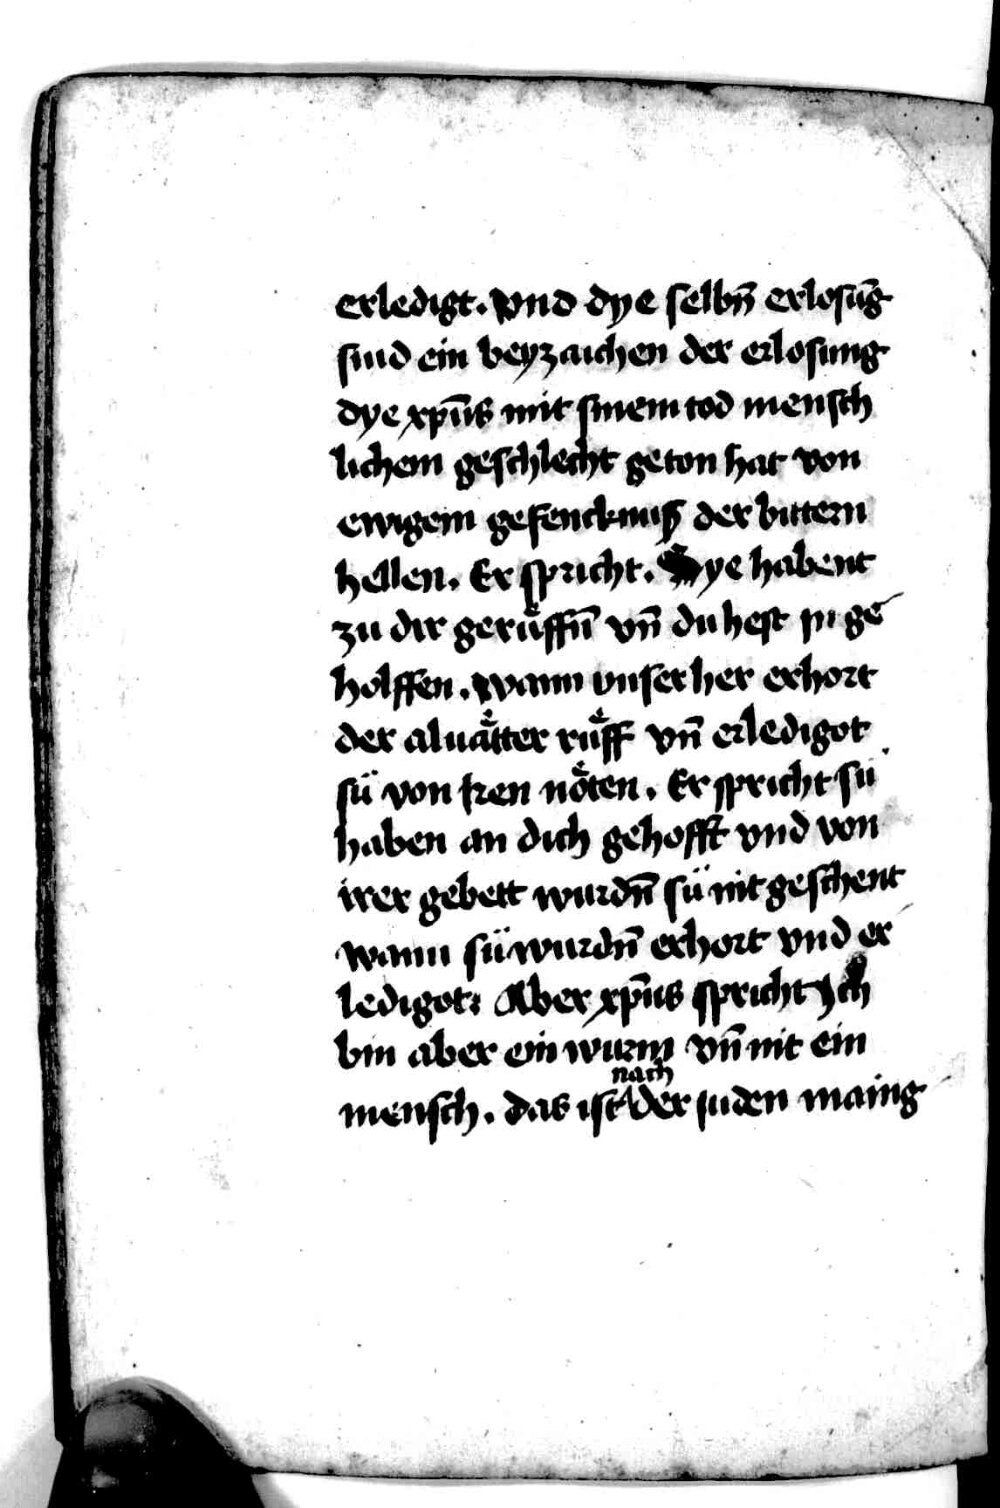 erledigt. vnd dye selbn̄ erlosūg
sind ein beyzaichen der erlosung
dye xp̄us mit sinem tod mensch
lichem geschlecht geton hat von
ewigem gefencknuß der bittern
hellen. Er spricht. Sye habent
zu dir gerůffn̄ vn̄ du hest in ge
holffen. wann vnser her erhort
der aluåtter růff vn̄ erledigot
sü von iren nöten. Er spricht sü
haben an dich gehofft vnd von
irer gebett wurdn̄ sü nit geschent
wann sü wurdn̄ erhort vnd er
ledigot: Aber xp̄us spricht Ich
bin aber ein wurm vn̄ nit ein
nach
mensch. das ist der juden maing